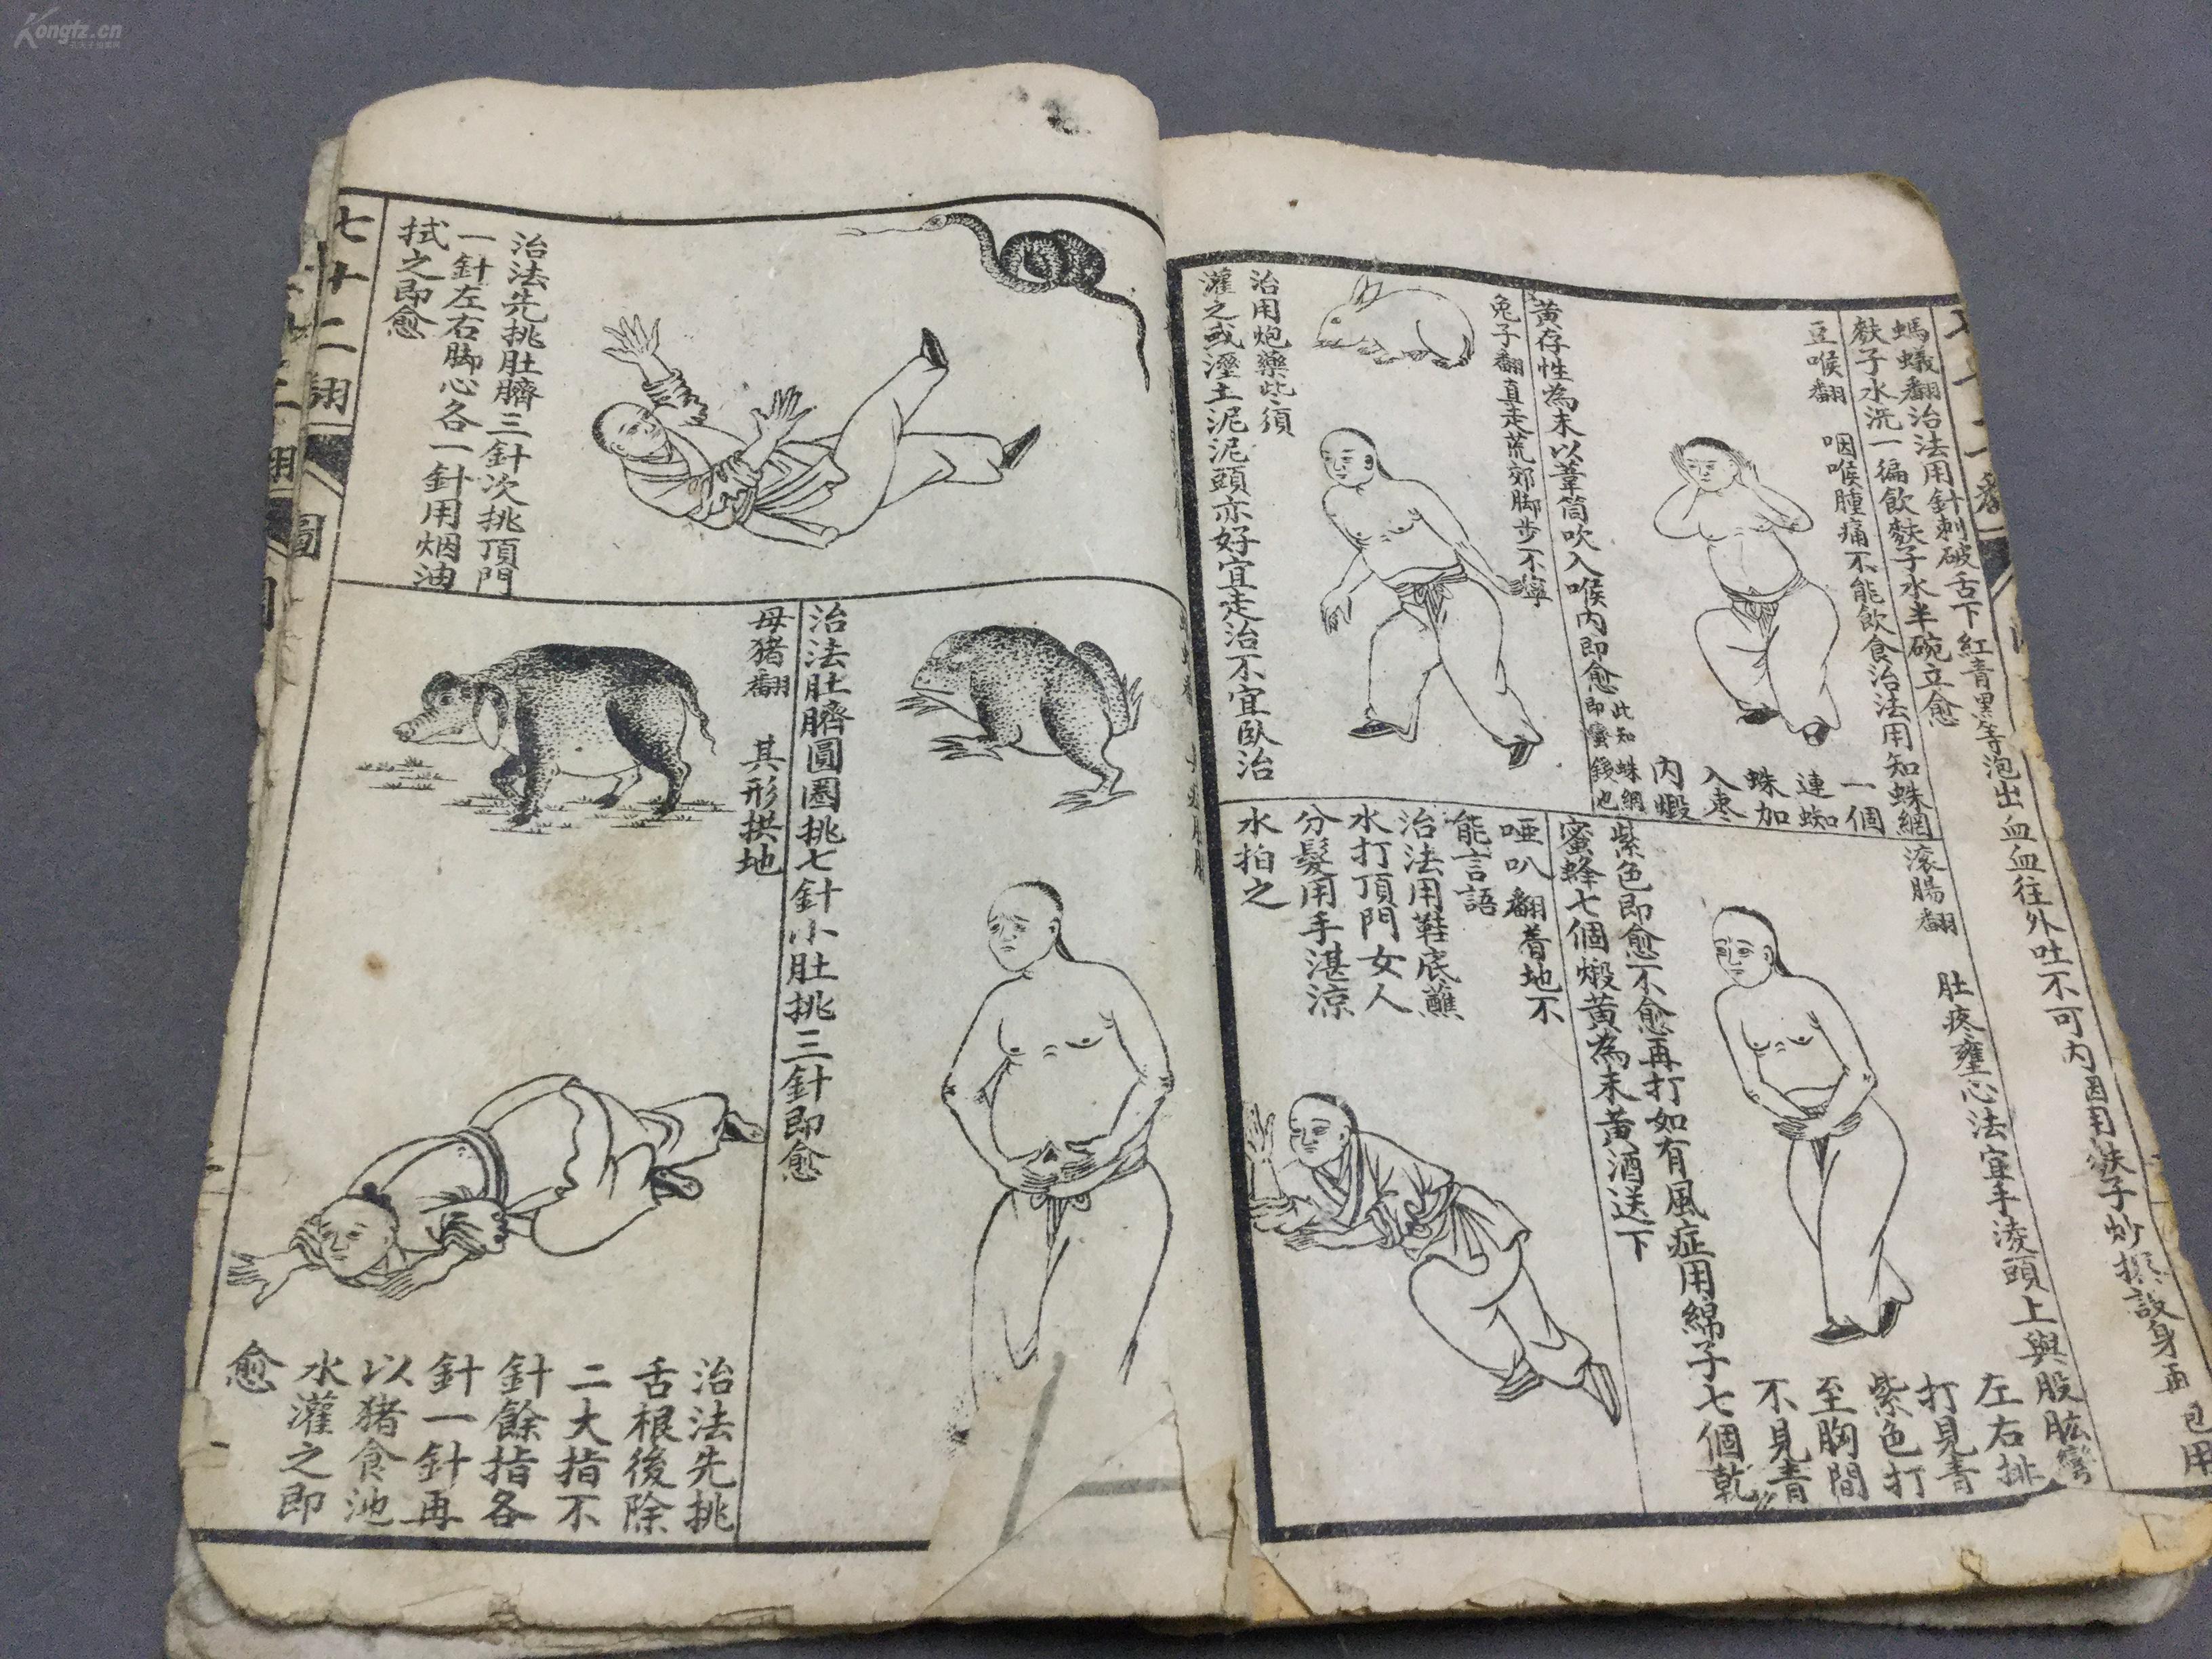 Kongfz.cn
螞蟻翻治法用針刺破舌下紅青黑等泡出血血往外吐不可內因用麩子炒
麩子水洗一徧飲麩子水半碗立愈
豆喉翻
咽喉腫痛不能飲食治法用知蛛網
一個
連蜘
蛛加
入枣
內煅
黃存性為末以葦筒吹入喉內即愈
此知蛛網
即蜜錢也
兔子翻真走荒郊脚步不寧
治用炮藥此須
灌之或溼土泥泥頭亦好宜走治不宜臥治
滚腸翻
肚疼壅心法宜手湊頭上與股肱彎
左右排
打見青
紫色打
至胸間
不見青
紫色即愈不愈再打如有風症用綿子七個乾
蜜蜂七個煅黃為末黃酒送下
啞叭翻着地不
能言語
治法用鞋底蘸
水打頂門女人
分髮用手湛涼
水拍之
治法先挑肚臍三針次挑頂門
一針左右脚心各一針用烟油
拭之即愈
治法肚臍圓圈挑七針小肚挑三針即愈
母猪翻
其形拱地
治法先挑
舌根後除
二大指不
針餘指各
針一針再
以猪食池
水灌之即
愈
七十二翻
圖